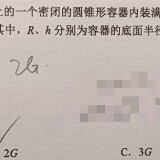 上的一个密闭的圆锥形容器内装满
其中，R、h 分别为容器的底面半径
2G
2G C. 3G